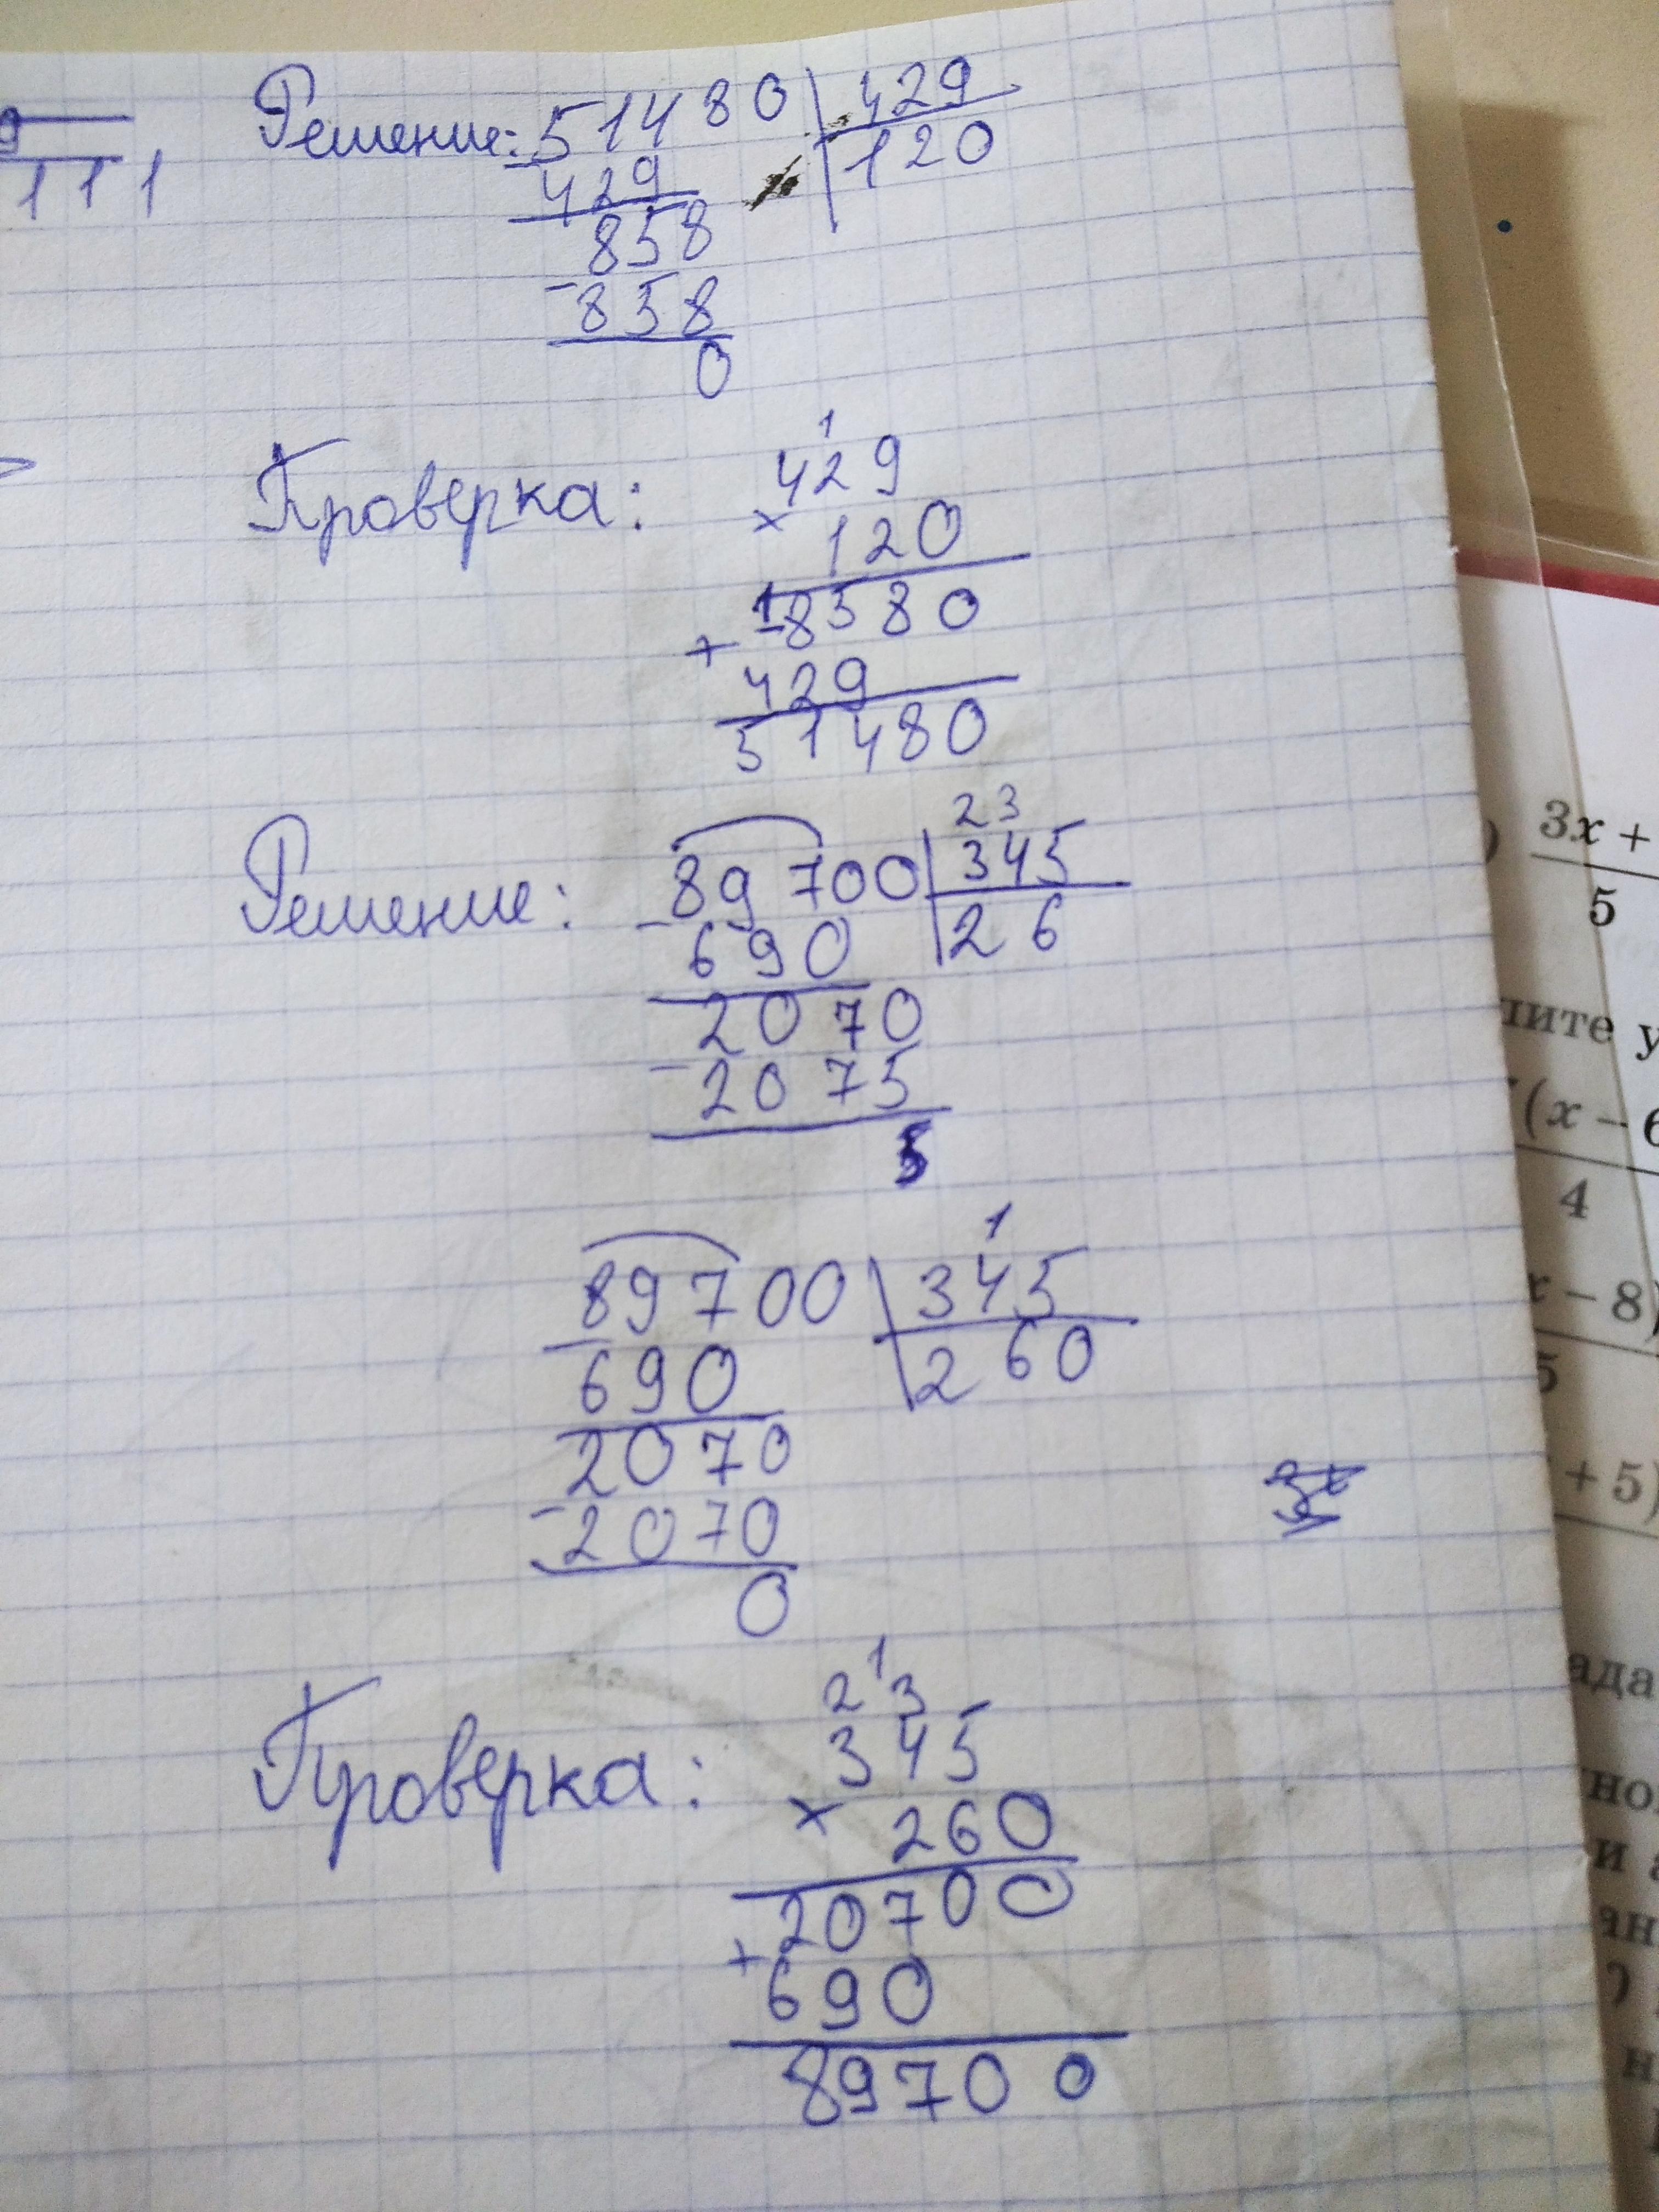 9
111
Решение: 51480 | 429
- 429 | 120
858
- 858
0
Проверка: 1
429
× 120
1
8580
+ 429
51480
2 3
Решение: 89700 | 345
- 690 | 26
2070
- 2075
5
1
89700 | 345
- 690 | 260
2070
- 2070
0
1
2 3
Проверка: 345
× 260
20700
+ 690
89700
) 3x +
5
(x – 6
4
x – 8)
5
+ 5)